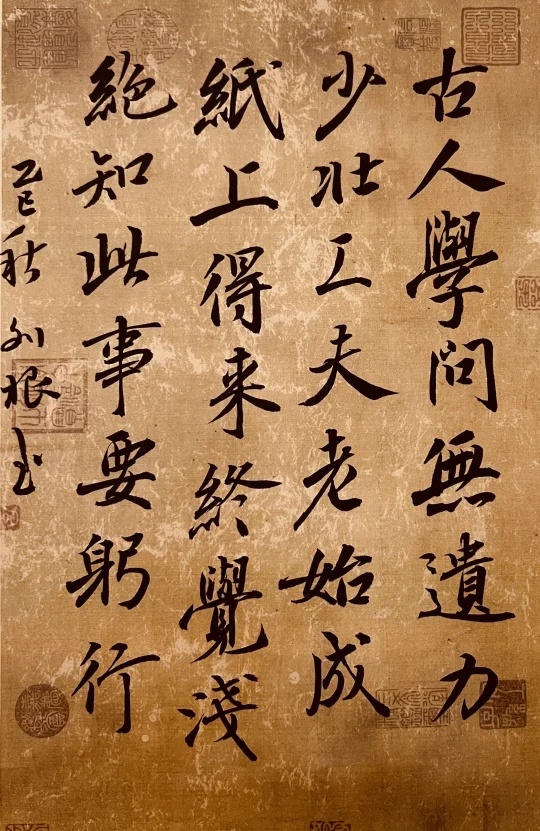 古人學問無遺力
少壯工夫老始成
紙上得来終覺淺
絕知此事要躬行
乙巳秋